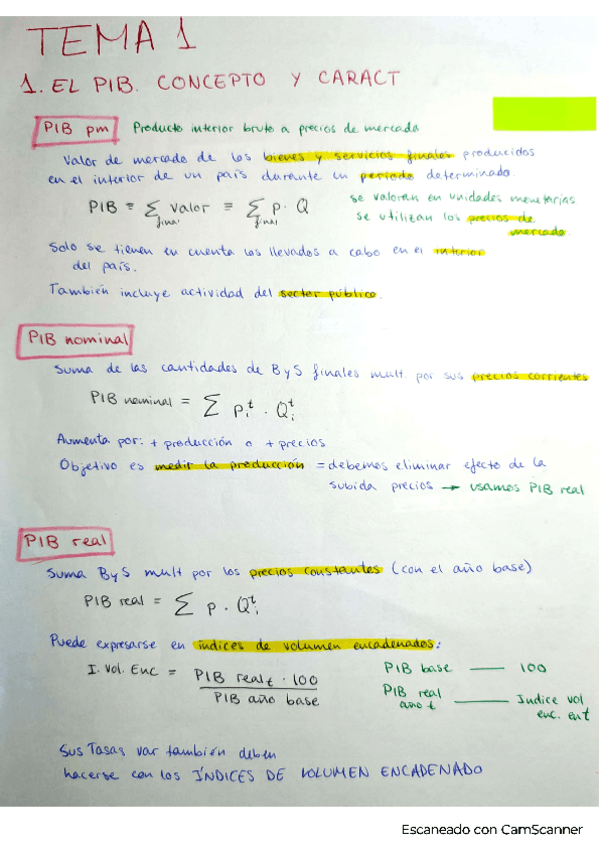 TEMA 1
1. EL PIB. CONCEPTO Y CARACT
PIB pm Producto interior bruto a precios de mercado
Valor de mercado de los bienes y servicios finales producidos
en el interior de un país durante un periodo determinado.
PIB = Σ valor = Σ P · Q
final final
se valoran en unidades monetarias
se utilizan los precios de
mercado.
Solo se tienen en cuenta los llevados a cabo en el interior
del país.
También incluye actividad del sector público.
PIB nominal
Suma de las cantidades de B y S finales mult. por sus precios corrientes
PIB nominal = Σ Pᵢᵗ · Qᵢᵗ
Aumenta por: + producción o + precios
Objetivo es medir la producción = debemos eliminar efecto de la
subida precios → usamos PIB real
PIB real
Suma B y S mult por los precios constantes (con el año base)
PIB real = Σ P · Qᵢᵗ
Puede expresarse en índices de volumen encadenados:
I. Vol. Enc = PIB realt · 100
PIB año base
PIB base — 100
PIB real
año t — Indice vol
enc. en t
Sus Tasas var también deben
hacerse con los ÍNDICES DE VOLUMEN ENCADENADO
Escaneado con CamScanner